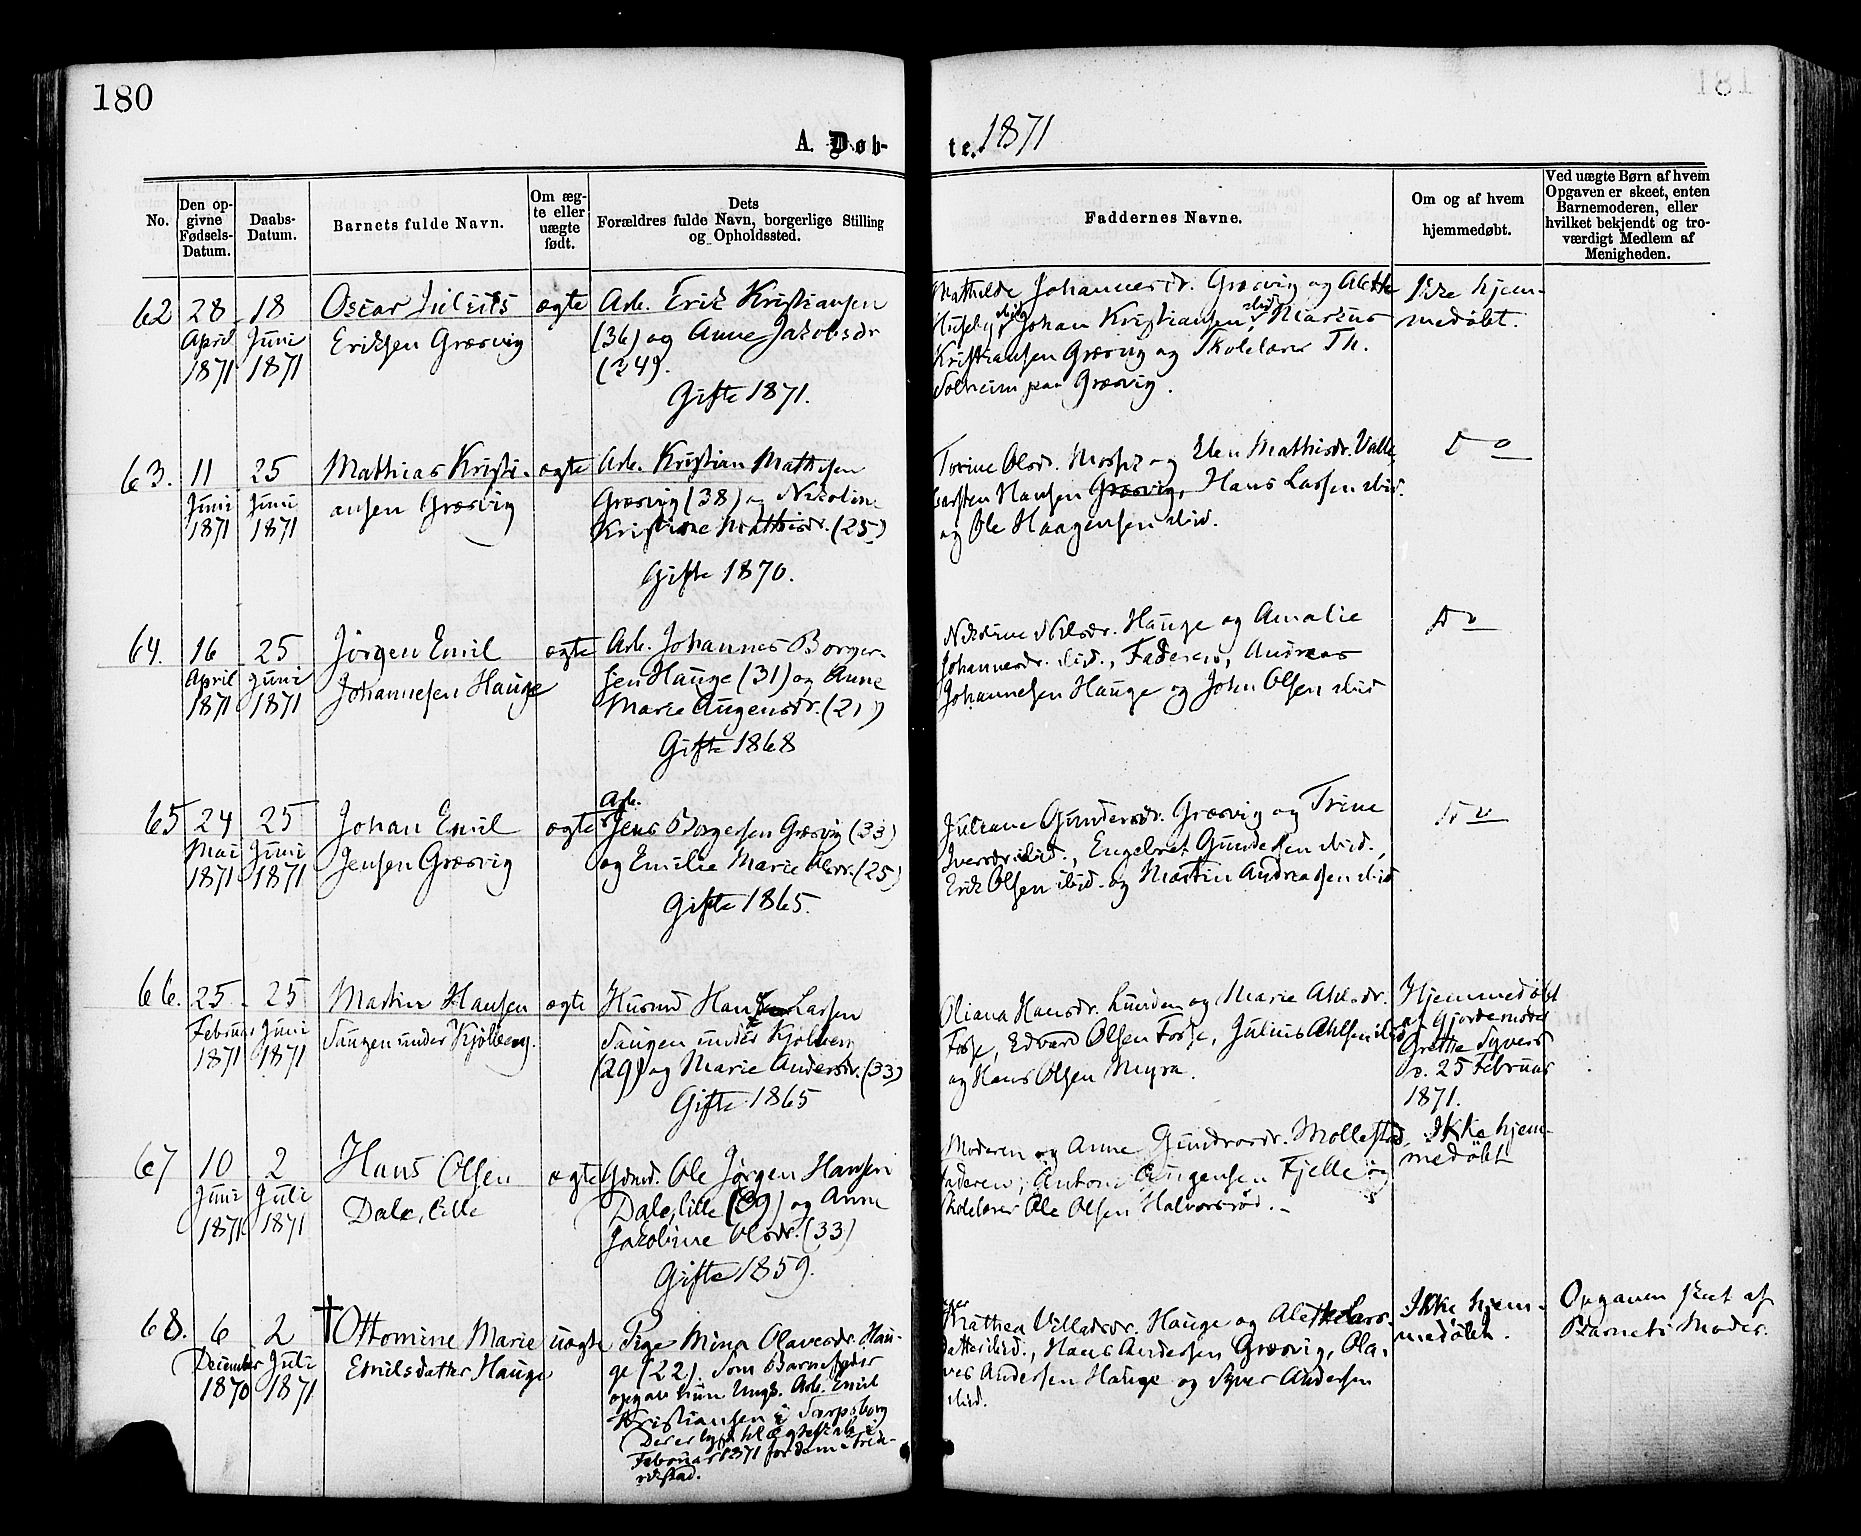 180
A. Døb-
te. 1871
No.
Den op-
givne
Fødsels-
Datum.
Daabs-
Datum.
Barnets fulde Navn.
Om æg-
te eller
uægte
født.
Dets
Forældres fulde Navn, borgerlige Stilling
og Opholdssted.
Faddernes Navne.
Om og af hvem
hjemmedøbt.
Ved uægte Børn af hvem
Opgaven er skeet, enten
Barnemoderen, eller
hvilket bekjendt og tro-
værdigt Medlem af
Menigheden.
62
28
April
1871
18
Juni
1871
Oscar Julius
Eriksen Græsvig
ægte
Arb. Erik Kristiansen
(36) og Anne Jakobsdr
(24).
Gifte 1871.
Mathilde Johannesdr. Græsvig og Alethe
Huseby, Johan Kristiansen ibid, Markus
Kristiansen Græsvig og Skolelærer Th.
Solheim paa Græsvig.
Ikke hjem-
medøbt.
63.
11
Juni
1871
25
Juni
1871
Mathias Kristi-
ansen Græsvig
ægte
Arb. Kristian Mathisen
Græsvig (38) og Nikoline
Kristine Mathisdr. (25)
Gifte 1870.
Torine Olsdr. og Elen Mathisdr. Valle,
Carsten Hansen Græsvig, Hans Lassen ibid.
og Ole Haagensen ibid.
Do
64.
16
April
1871
25
Juni
1871
Jörgen Emil
Johannesen Hauge
ægte
Arb. Johannes Borger-
sen Hauge (31) og Anne
Marie Augensdr. (21)
Gifte 1868
Nikoline Nilsdr. Hauge og Amalie
Johannesdr. ibid., Faderen, Andreas
Johannesen Hauge og John Olsen ibid
Do
65
24
Mai
1871
25
Juni
1871
Johan Emil
Jensen Græsvig
ægte
Arb.
Jens Borgersen Græsvig (33)
og Emilie Marie Olsdr. (25)
Gifte 1865.
Juliane Gundersdr. Græsvig og Trine
Iversdr ibid., Engebret Gundersen ibid.,
Erik Olsen ibid. og Martin Andreassen ibid
Do
66.
25
Februar
1871
25
Juni
1871
Martin Hansen
Saugen under Kjölberg.
ægte
Husmd Hans Lassen
Saugen under Kjölberg
(29) og Marie Andersdr. (33)
Gifte 1865
Oliana Hansdr. Lunden og Marie Ahlsdr.
Fosse, Edvard Olsen Fosse, Julius Ahlsen ibid
og Hans Olsen Myra.
Hjemmedøbt
af Gjordemoder
Grethe Syvers
D. 25 Februar
1871.
67
10
Juni
1871
2
Juli
1871
Hans Olsen
Dale, lille
ægte
Gdmd. Ole Jörgen Hansen
Dale, lille (39) og Anne
Jakobine Olsdr. (33)
Gifte 1859.
Moderen og Anne Gundrosdr. Mollestad,
Faderen, Anton Augensen Fjelle og
Skolelærer Ole Olsen Halvorsrød.
Ikke hjem-
medøbt
68.
6
December
1870
2
Juli
1871
† Ottomine Marie
Emilsdatter Hauge
uægte
Pige Mina Olavesdr. Hau-
ge (22). Som Barnefader
opgav hun Ungk. Arb. Emil
Kristiansen i Sarpsborg
Der er lyst til Ægteskab i
Februar 1871 for dem i Fred-
rikstad.
Mathea Villadsdr. Hauge og Alethe Lars-
datter ibid., Hans Andersen Græsvig, Ola-
ves Andersen Hauge og Syver Andersen
ibid.
Ikke hjem-
medøbt.
Opgaven skeet af
Barnets Moder.